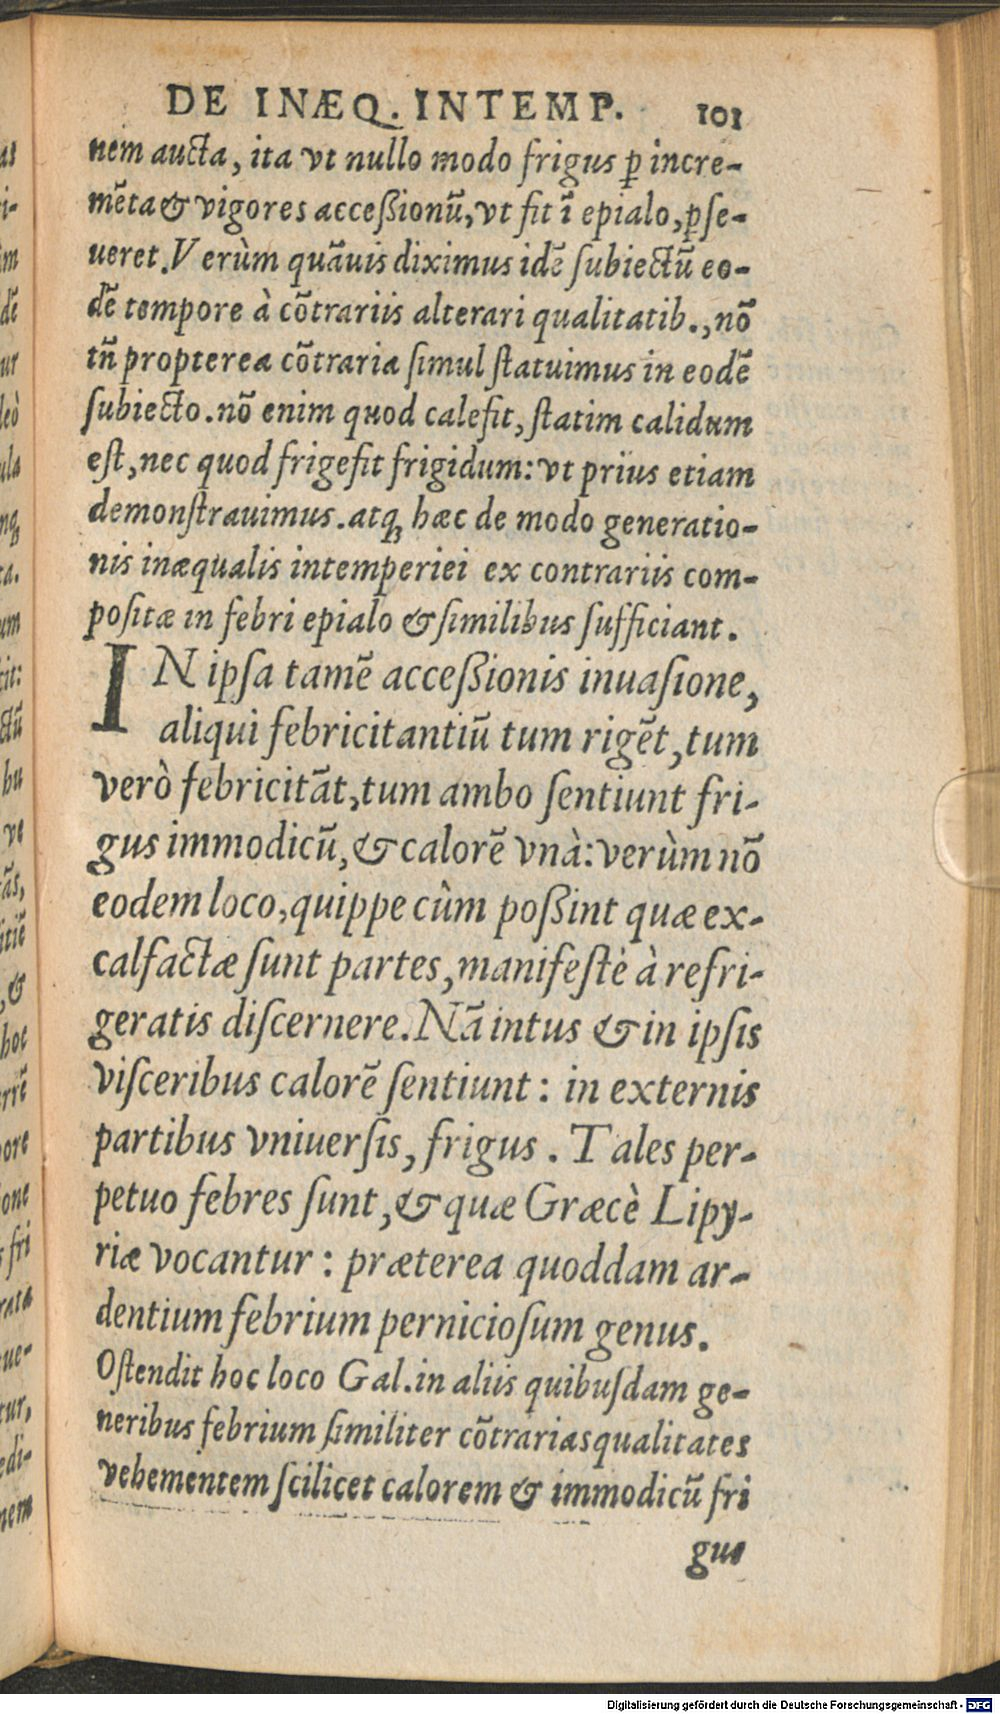 DE INÆQ. INTEMP. 101
nem aucta, ita vt nullo modo frigus ꝑ incre-
mẽta & vigores acceßionũ, vt fit ĩ epialo, ꝑſe-
ueret. Verùm quãuis diximus idẽ ſubiectũ eo-
dẽ tempore à cõtrariis alterari qualitatib., nõ
tñ propterea cõtraria ſimul ſtatuimus in eodẽ
ſubiecto. nõ enim quod calefit, ſtatim calidum
eſt, nec quod frigefit frigidum: vt priùs etiam
demonſtrauimus. atqꝫ hæc de modo generatio-
nis inæqualis intemperiei ex contrariis com-
poſitæ in febri epialo & ſimilibus ſufficiant.
IN ipſa tamẽ acceßionis inuaſione,
aliqui febricitantiũ tum rigẽt, tum
verò febricitãt, tum ambo ſentiunt fri-
gus immodicũ, & calorẽ vnà: verùm nõ
eodem loco, quippe cùm poßint quæ ex-
calfactæ ſunt partes, manifeſtè à refri-
geratis diſcernere. Nã intus & in ipſis
viſceribus calorẽ ſentiunt: in externis
partibus vniuerſis, frigus. Tales per-
petuo febres ſunt, & quæ Græcè Lipy-
riæ vocantur: præterea quoddam ar-
dentium febrium pernicioſum genus.
Oſtendit hoc loco Gal. in aliis quibuſdam ge-
neribus febrium ſimiliter cõtrarias qualitates
vehementem ſcilicet calorem & immodicũ fri
gus
Digitalisierung gefördert durch die Deutsche Forschungsgemeinschaft - DFG